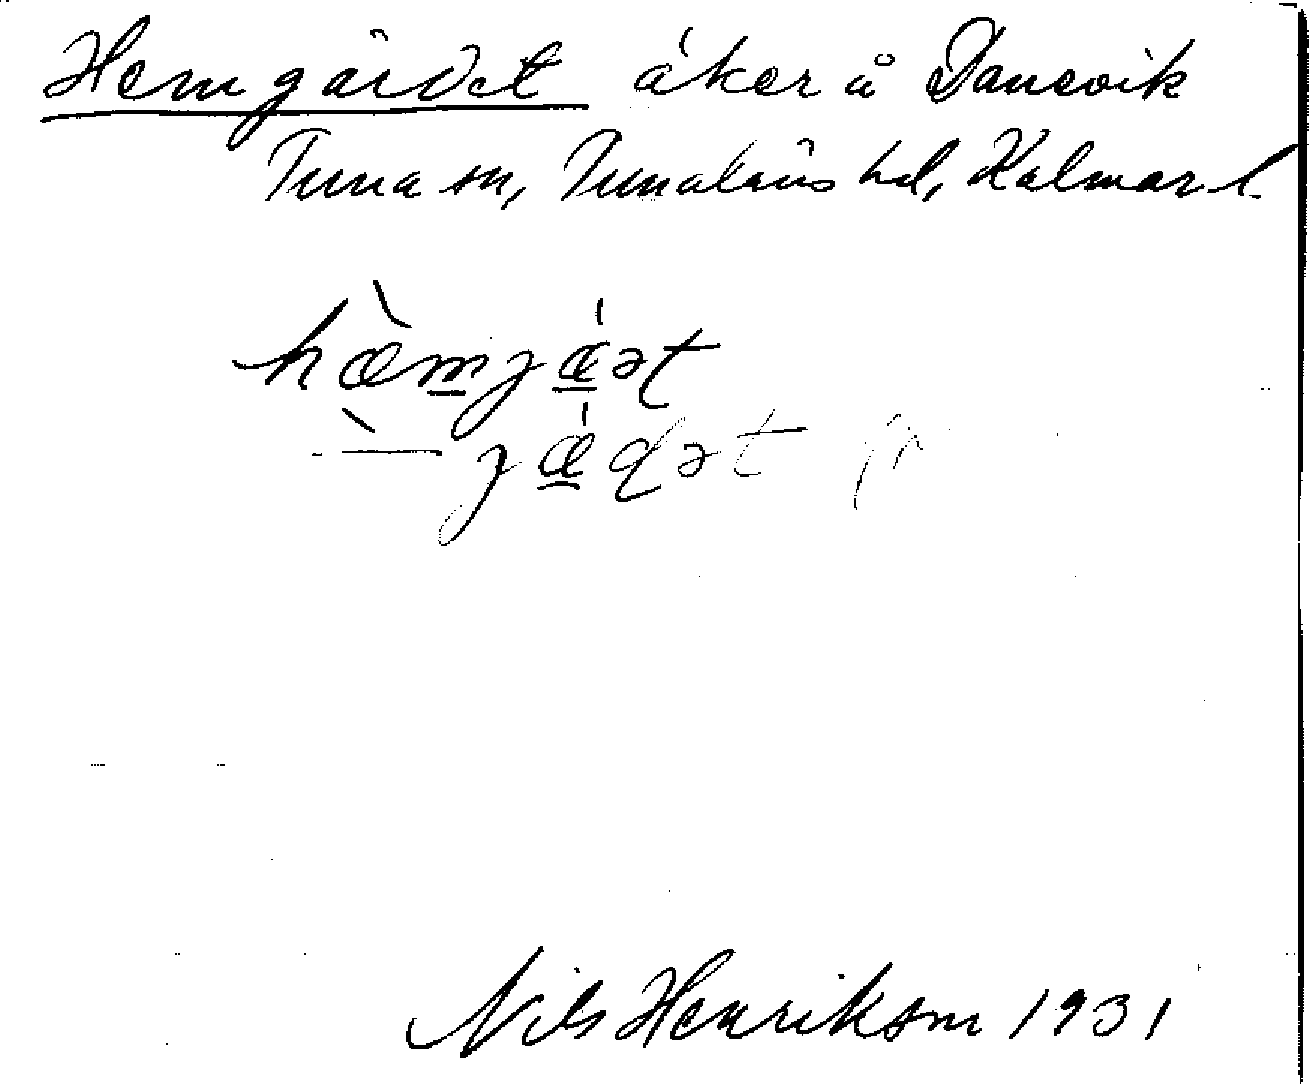 Hemgärdet åker å Danevik
Tuna sn, Tunaläns hd, Kalmar l.
hæ̀mjǽət
–̀ jǽdət jr
Nils Henrikson 1931